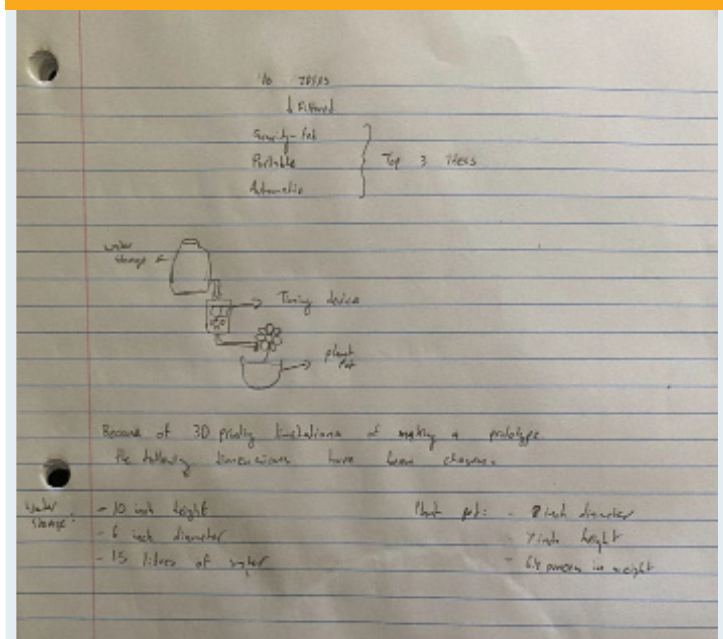 10 IDEAS
↓ Filtered
Gravity-Fed
Portable
Automatic
Top 3 Ideas
water
storage
Timing device
plant
Pot
Because of 3D printing limitations of making a prototype
the following dimensions have been chosen.
Water
Storage:
- 10 inch height
- 6 inch diameter
- 15 litres of water
Plant pot: - 8 inch diameter
- 7 inch height
- ounces in weight